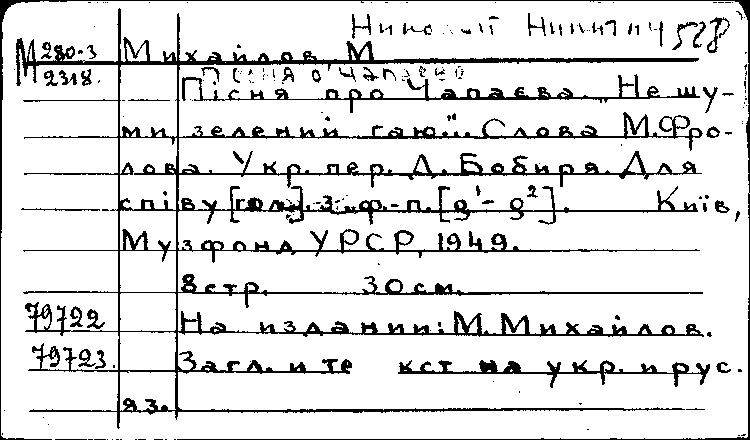 Николай Никитич 528
М 280-3 Михайлов, М
2318. Песня о Чапаево
Пісня про Чапаєва. „Не шу-
ми, зелений гаю..." Слова М. Фро-
лова. Укр. пер. Д. Бобиря. Для
співу [гол.] з ф.-п. [g¹ - g²]. Київ,
Музфонд УРСР, 1949.
8 стр. 30 см.
79722 На издании: М. Михайлов.
79723. Загл. и те кст на укр. и рус.
яз.